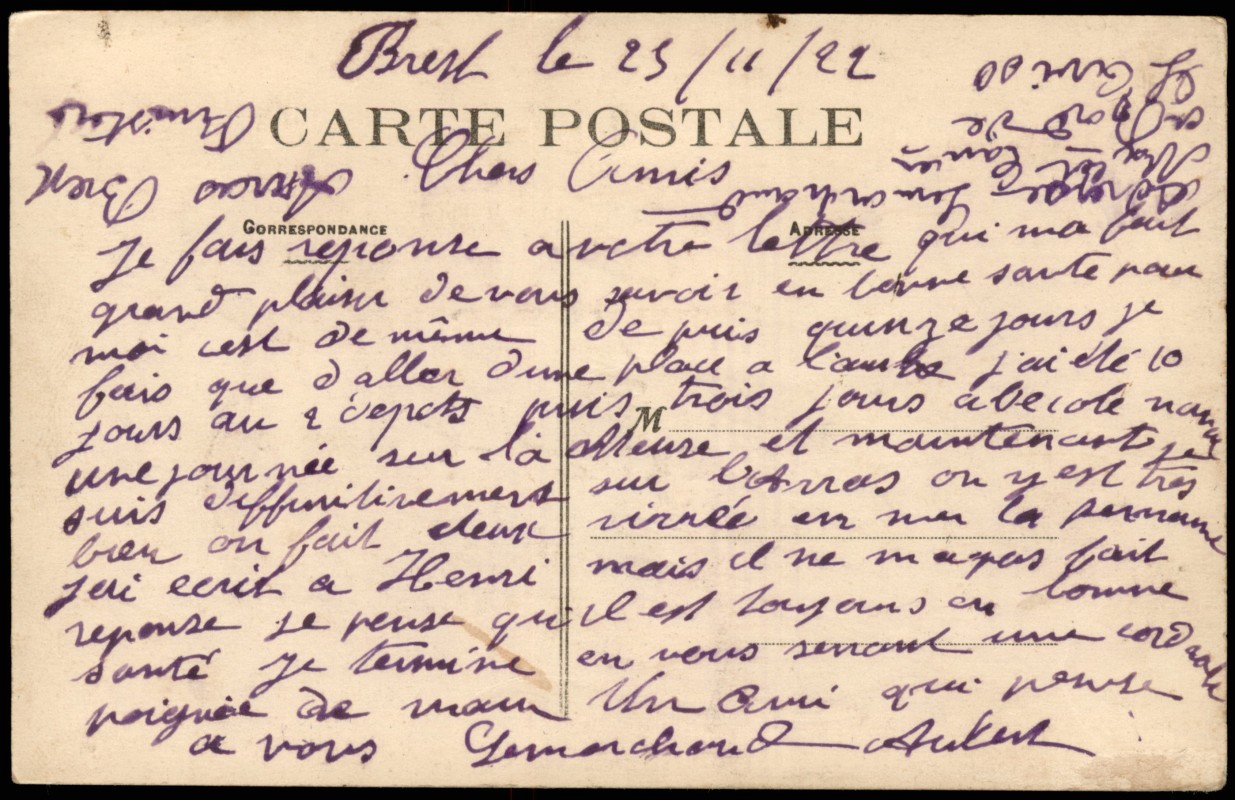 Brest le 25/11/22
CARTE POSTALE
Chers Amis
CORRESPONDANCE ADRESSE
Je fais reponse a votre lettre qui ma fait
grand plaisir de vous savoir en bonne sante pour
moi cest de même de puis quinze jours je
fais que d'aller d'une place a l'autre j'ai été 10
jours au 2 depots puis trois jours a lecole
M
une journée sur la Meuse et maintenant je
suis deffinitivement sur l'Arras on y est tres
bien on fait deux en mer la semaine
jai ecrit a Henri mais il ne ma pas fait
reponse je pense qu'il est toujours en bonne
santé je termine en vous serrant une cordiale
poignée de main Un Ami qui pense
a vous Lemarchand
Adresse Lemarchand
Mat
L'Aviso
Arras Brest
Finistère